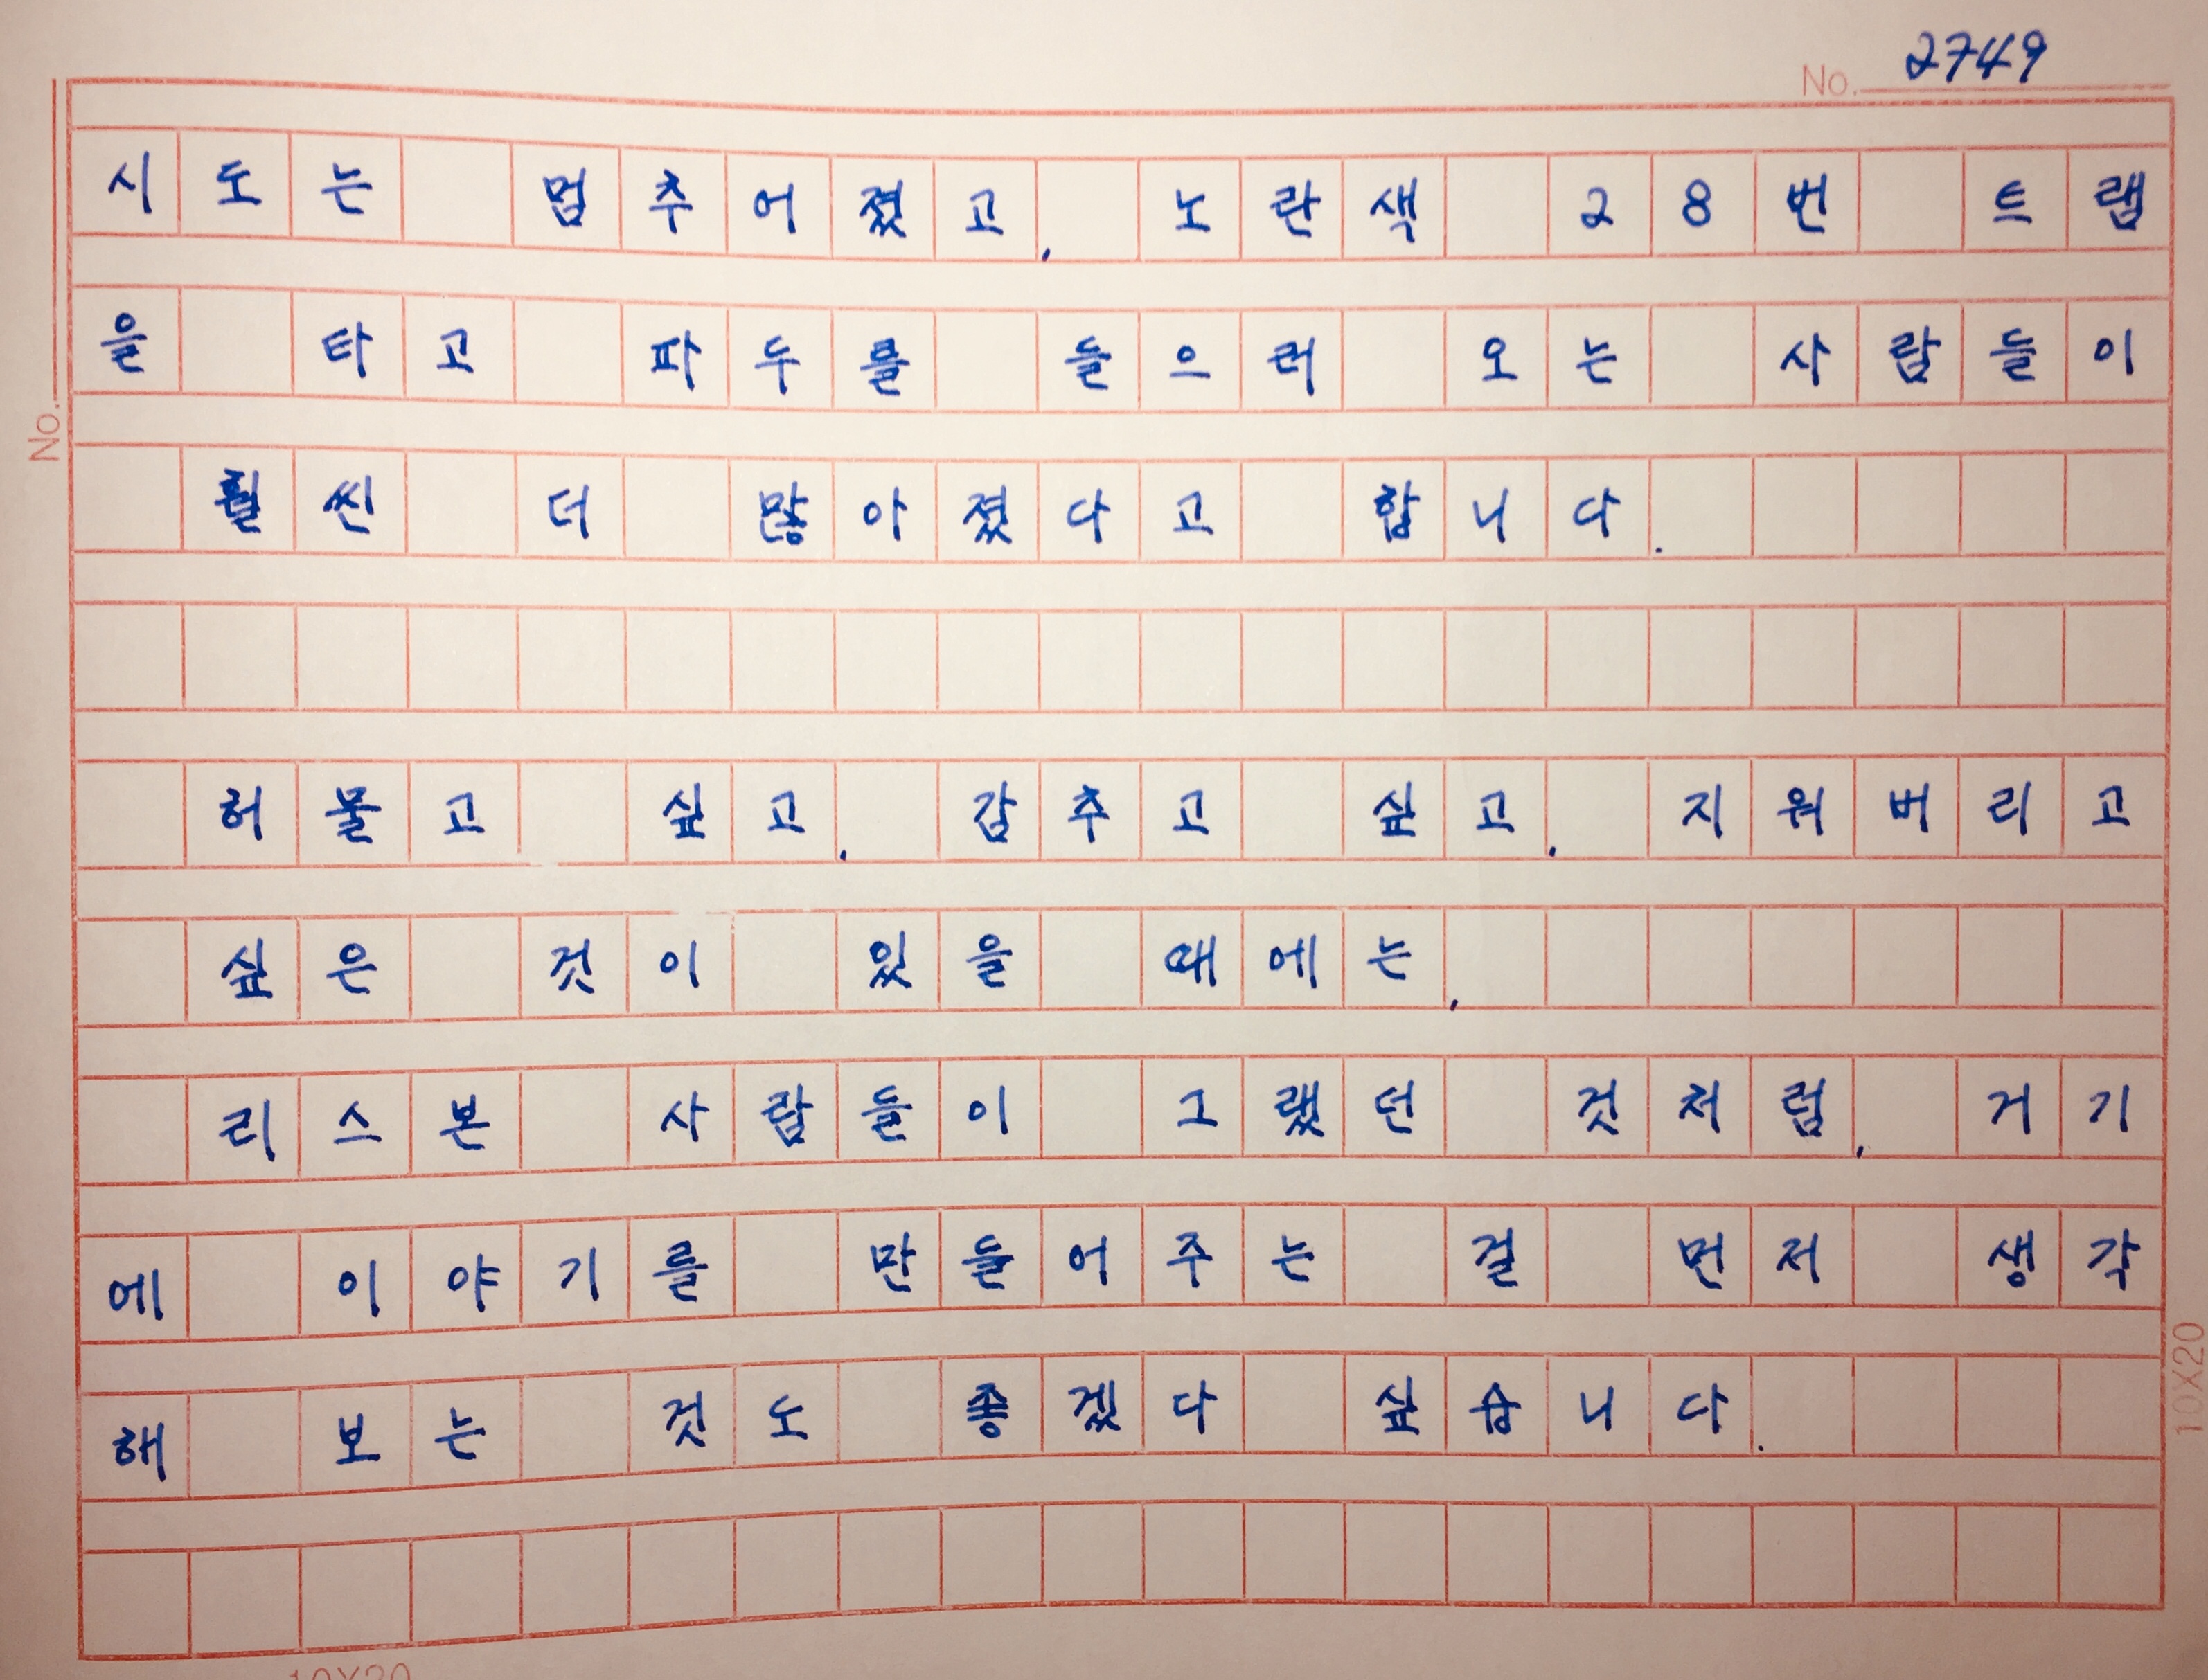 No. 2749
시도는 멈추어졌고, 노란색 28번 트램
을 타고 파두를 들으러 오는 사람들이
훨씬 더 많아졌다고 합니다.
허물고 싶고, 감추고 싶고, 지워버리고
싶은 것이 있을 때에는,
리스본 사람들이 그랬던 것처럼, 거기
에 이야기를 만들어주는 걸 먼저 생각
해 보는 것도 좋겠다 싶습니다.
No.
10X20
10X20